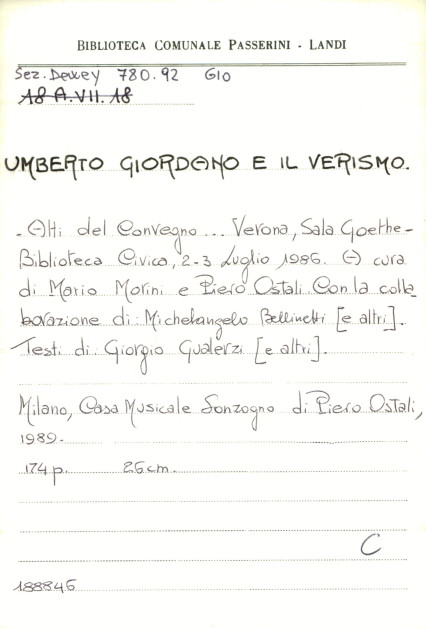 BIBLIOTECA COMUNALE PASSERINI - LANDI
Sez. Dewey 780.92 GIO
18 A.VII.18
UMBERTO GIORDANO E IL VERISMO.
- Atti del Convegno ... Verona, Sala Goethe-
Biblioteca Civica, 2-3 Luglio 1986. A cura
di Mario Morini e Piero Ostali. Con la colla_
borazione di Michelangelo Bellinetti [e altri].
Testi di Giorgio Gualerzi [e altri].
Milano, Casa Musicale Sonzogno di Piero Ostali,
1989.
174 p. 26 cm.
C
188846